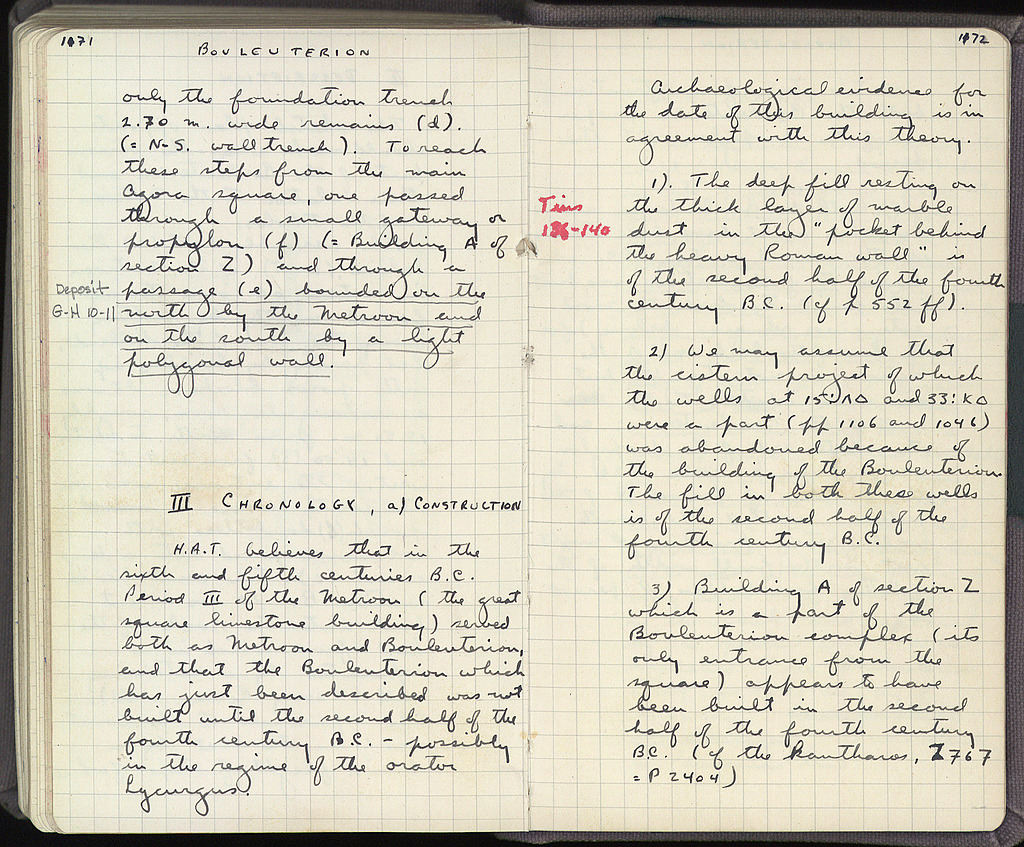 1171
BOULEUTERION
only the foundation trench
2.70 m. wide remains (d).
(= N-S. wall trench). To reach
these steps from the main
Agora square, one passed
through a small gateway or
propylon (f) (= Building A of
section Z) and through a
passage (e) bounded on the
north by the Metroon and
on the south by a light
polygonal wall.
Deposit
G-H 10-11
III CHRONOLOGY, a) CONSTRUCTION
H.A.T. believes that in the
sixth and fifth centuries B.C.
Period III of the Metroon (the great
square limestone building) served
both as Metroon and Bouleuterion,
and that the Bouleuterion which
has just been described was not
built until the second half of the
fourth century B.C. - possibly
in the regime of the orator
Lycurgus.
1172
Archaeological evidence for
the date of this building is in
agreement with this theory.
1). The deep fill resting on
the thick layer of marble
dust in the "pocket behind
the heavy Roman wall" is
of the second half of the fourth
century B.C. (cf p 552 ff).
Tins
136-140
2) We may assume that
the cistern project of which
the wells at 15:ΛΔ and 33:ΚΔ
were a part (pp 1106 and 1046)
was abandoned because of
the building of the Bouleuterion.
The fill in both these wells
is of the second half of the
fourth century B.C.
3) Building A of section Z
which is a part of the
Bouleuterion complex (its
only entrance from the
square) appears to have
been built in the second
half of the fourth century
B.C. (cf the kantharos, Z 767
= P 2404)